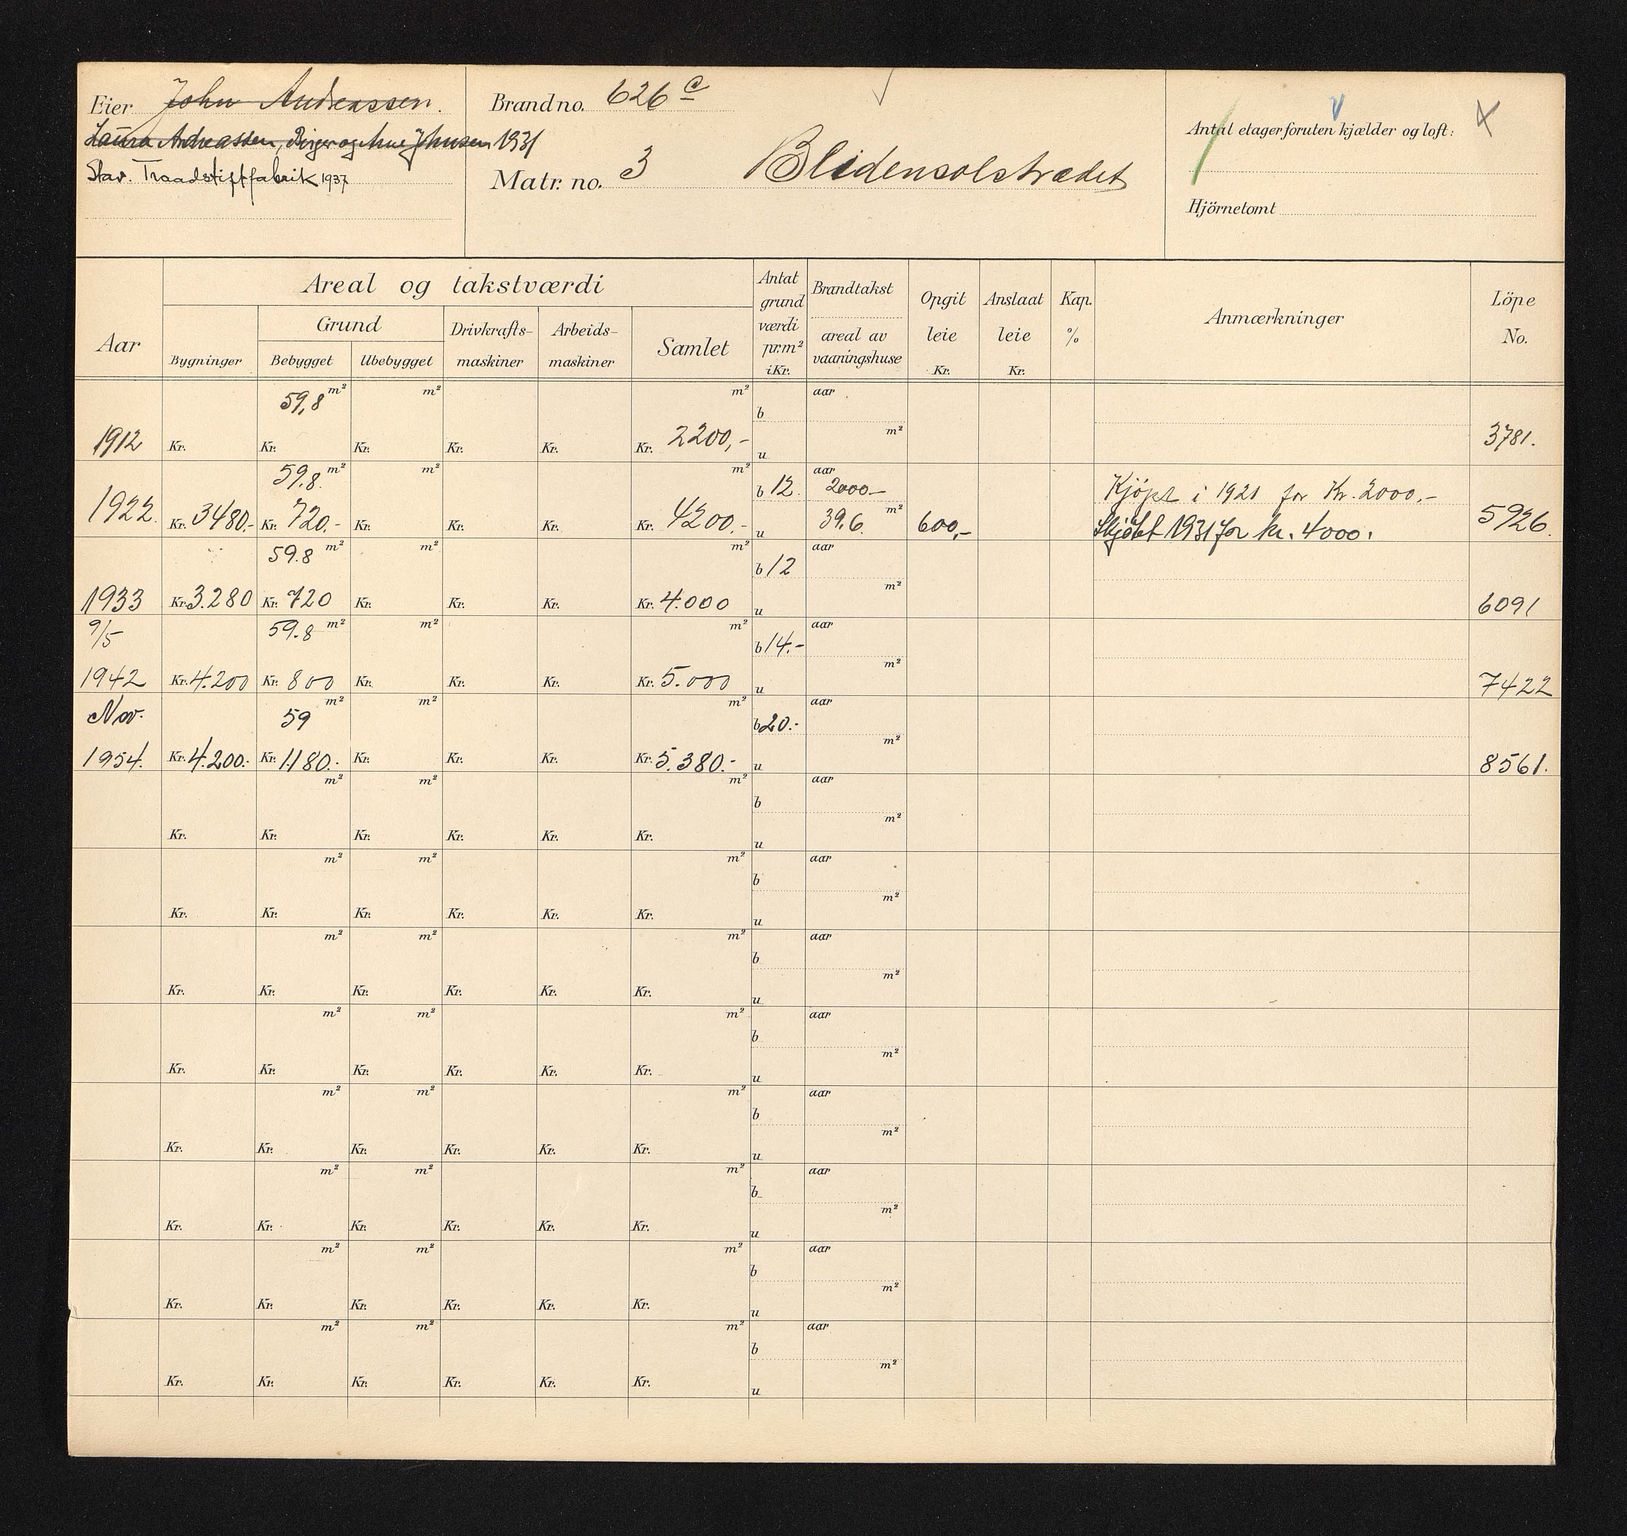 Eier John Andreassen.
Laura Andreassen, Birger og Anne Johnsen 1931
Stav. Traadstiftfabrik 1937
Brand no. 626 c
Matr. no. 3 Blidensolstrædet
Antal etager foruten kjælder og loft:
Hjörnetomt
Aar
Areal og takstværdi
Bygninger
Grund
Bebygget Ubebygget
Drivkrafts-
maskiner
Arbeids-
maskiner
Samlet
Antat
grund
værdi
pr. m²
i Kr.
Brandtakst
areal av
vaaningshuse
Opgit
leie
Kr.
Anslaat
leie
Kr.
Kap.
%
Anmærkninger
Löpe
No.
59,8 m² m² m² b aar
1912 Kr. Kr. Kr. Kr. Kr. Kr. 2200,- u m² 3781.
59.8 m² m² m² b 12. aar 2000- Kjöpt i 1921 for Kr. 2000,-
1922. Kr. 3480.- Kr. 720.- Kr. Kr. Kr. Kr. 4200.- u 39,6 m² 600,- Skjötet 1931 for kr. 4000. 5926.
59.8 m² m² m² b 12 aar
1933 Kr. 3.280 Kr. 720 Kr. Kr. Kr. Kr. 4.000 u m² 6091
9/5 59.8 m² m² m² b 14.- aar
1942 Kr. 4.200 Kr. 800 Kr. Kr. Kr. Kr. 5.000 u m² 7422
Nov. 59 m² m² m² b 20.- aar
1954. Kr. 4.200.- Kr. 1180.- Kr. Kr. Kr. Kr. 5.380.- u m² 8561.
m² m² m² b aar
Kr. Kr. Kr. Kr. Kr. Kr. u m²
m² m² m² b aar
Kr. Kr. Kr. Kr. Kr. Kr. u m²
m² m² m² b aar
Kr. Kr. Kr. Kr. Kr. Kr. u m²
m² m² m² b aar
Kr. Kr. Kr. Kr. Kr. Kr. u m²
m² m² m² b aar
Kr. Kr. Kr. Kr. Kr. Kr. u m²
m² m² m² b aar
Kr. Kr. Kr. Kr. Kr. Kr. u m²
m² m² m² b aar
Kr. Kr. Kr. Kr. Kr. Kr. u m²
m² m² m² b aar
Kr. Kr. Kr. Kr. Kr. Kr. u m²